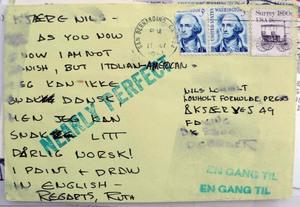 KJÆRE NILS -
AS YOU NOW
KNOW I AM NOT
DANISH, BUT ITALIAN-AMERICAN
JEG KAN IKKE
SNAKKE DANSK
MEN JEG KAN
SNAKKE LITT
DÅRLIG NORSK!
I PAINT + DRAW
IN ENGLISH -
REGARDS, RUTH
NEARLY PERFECT
SAN BERNARDINO, CA
PM
WASHINGTON
WASHINGTON
Surrey 1890s
USA
NILS LOMHOLT
LOMHOLT FORMULAR PRESS
49
EN GANG TIL
EN GANG TIL